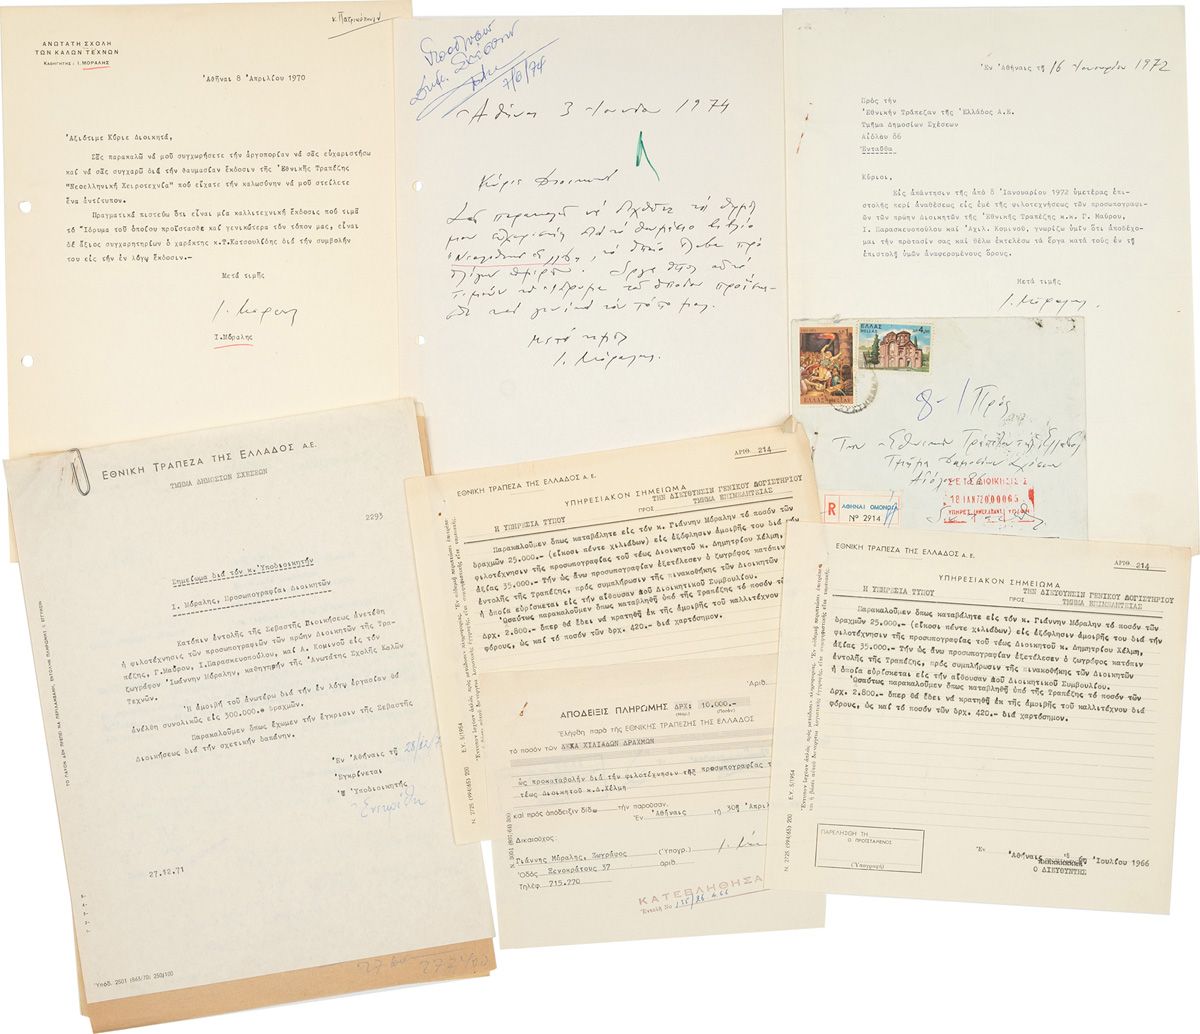 κ. Πατρικόπουλο
ΑΝΩΤΑΤΗ ΣΧΟΛΗ
ΤΩΝ ΚΑΛΩΝ ΤΕΧΝΩΝ
ΚΑΘΗΓΗΤΗΣ : Ι. ΜΟΡΑΛΗΣ
Ἀθῆναι 8 Ἀπριλίου 1970
Ἀξιότιμε Κύριε Διοικητά,
Σᾶς παρακαλῶ νά μοῦ συγχωρήσετε τήν ἀργοπορίαν νά σᾶς εὐχαριστήσω
καί νά σᾶς συγχαρῶ διά τήν θαυμασίαν ἔκδοσιν τῆς Ἐθνικῆς Τραπέζης
"Νεοελληνική Χειροτεχνία" πού εἴχατε τήν καλωσύνην νά μοῦ στείλετε
ἕνα ἀντίτυπον.
Πραγματικά πιστεύω ὅτι εἶναι μία καλλιτεχνική ἔκδοσις πού τιμᾶ
τό Ἵδρυμα τοῦ ὁποίου προΐστασθε καί γενικώτερα τόν τόπον μας, εἶναι
δέ ἄξιος συγχαρητηρίων ὁ χαράκτης κ.Τ.Κατσουλίδης διά τήν συμβολήν
του εἰς τήν ἐν λόγῳ ἔκδοσιν.-
Μετά τιμῆς
Ι. Μόραλης
Ι.Μόραλης
7/6/74
Ἀθήνα 3 Ἰουνίου 1974
Κύριε Διοικητά
Σᾶς παρακαλῶ νά δεχθῆτε τίς θερμές
μου εὐχαριστίες γιά τό θαυμάσιο βιβλίο
πού ἔλαβα πρό
ὀλίγων ἡμερῶν. Ἔργα ὅπως αὐτό
τιμοῦν τό ἵδρυμα τοῦ ὁποίου προΐστα-
σθε καί γενικά τόν τόπο μας.
Μετά τιμῆς
Ι. Μόραλης.
Ἐν Ἀθήναις τῇ 16 Ἰανουαρίου 1972
Πρός τήν
Ἐθνικήν Τράπεζαν τῆς Ἑλλάδος Α.Ε.
Τμῆμα Δημοσίων Σχέσεων
Αἰόλου 86
Ἐνταῦθα
Κύριοι,
Εἰς ἀπάντησιν τῆς ἀπό 8 Ἰανουαρίου 1972 ὑμετέρας ἐπι-
στολῆς περί ἀναθέσεως εἰς ἐμέ τῆς φιλοτεχνήσεως τῶν προσωπογραφι-
ῶν τῶν πρώην Διοικητῶν τῆς Ἐθνικῆς Τραπέζης κ.κ. Γ. Μαύρου,
Ι. Παρασκευοπούλου καί Ἀχιλ. Κομινοῦ, γνωρίζω ὑμῖν ὅτι ἀποδέχο-
μαι τήν πρότασίν σας καί θέλω ἐκτελέσω τά ἔργα κατά τούς ἐν τῇ
ἐπιστολῇ ὑμῶν ἀναφερομένους ὅρους.
Μετά τιμῆς
Ι. Μόραλης.
ΕΛΛΑΣ HELLAS
ΕΛΛΑΣ
HELLAS
4,50
Πρός
Τήν Ἐθνικήν Τράπεζαν τῆς Ἑλλάδος
Τμῆμα Δημοσίων Σχέσεων
Αἰόλου 86
R
ΑΘΗΝΑΙ ΟΜΟΝΟΙΑ
Nº 2914
18 ΙΑΝ 72
ΕΘΝΙΚΗ ΤΡΑΠΕΖΑ ΤΗΣ ΕΛΛΑΔΟΣ Α.Ε.
ΤΜΗΜΑ ΔΗΜΟΣΙΩΝ ΣΧΕΣΕΩΝ
2293
Σημείωμα διά τόν κ. Ὑποδιοικητήν
Ι. Μόραλης, Προσωπογραφίαι Διοικητῶν
Κατόπιν ἐντολῆς τῆς Σεβαστῆς Διοικήσεως ἀνετέθη
ἡ φιλοτέχνησις τῶν προσωπογραφιῶν τῶν πρώην Διοικητῶν τῆς Τρα-
πέζης, Γ.Μαύρου, Ι.Παρασκευοπούλου, καί Α. Κομινοῦ εἰς τόν
ζωγράφον Ἰωάννην Μόραλην, καθηγητήν τῆς Ἀνωτάτης Σχολῆς Καλῶν
Τεχνῶν.
Ἡ ἀμοιβή τοῦ ἀνωτέρω διά τήν ἐν λόγῳ ἐργασίαν θά
ἀνέλθῃ συνολικῶς εἰς 300.000.- δραχμῶν.
Παρακαλοῦμεν ὅπως ἔχωμεν τήν ἔγκρισιν τῆς Σεβαστῆς
Διοικήσεως διά τήν σχετικήν δαπάνην.
Ἐν Ἀθήναις τῇ 28/12/7
Ἐγκρίνεται
Ὁ Ὑποδιοικητής
27.12.71
Ὑπόδ. 2501 (863/70) 250/100
ΑΡΙΘ. 214
ΕΘΝΙΚΗ ΤΡΑΠΕΖΑ ΤΗΣ ΕΛΛΑΔΟΣ Α. Ε.
ΥΠΗΡΕΣΙΑΚΟΝ ΣΗΜΕΙΩΜΑ
Η ΥΠΗΡΕΣΙΑ ΤΥΠΟΥ ΠΡΟΣ ΤΗΝ ΔΙΕΥΘΥΝΣΙΝ ΓΕΝΙΚΟΥ ΛΟΓΙΣΤΗΡΙΟΥ
ΤΜΗΜΑ ΕΠΙΜΕΛΗΤΕΙΑΣ
Παρακαλοῦμεν ὅπως καταβάλητε εἰς τόν κ. Γιάννην Μόραλην τό ποσόν τῶν
δραχμῶν 25.000.- (εἴκοσι πέντε χιλιάδων) εἰς ἐξόφλησιν ἀμοιβῆς του διά τήν
φιλοτέχνησιν τῆς προσωπογραφίας τοῦ τέως Διοικητοῦ κ. Δημητρίου Χέλμη,
ἀξίας 35.000.- Τήν ὡς ἄνω προσωπογραφίαν ἐξετέλεσεν ὁ ζωγράφος κατόπιν
ἐντολῆς τῆς Τραπέζης, πρός συμπλήρωσιν τῆς πινακοθήκης τῶν Διοικητῶν
ἡ ὁποία εὑρίσκεται εἰς τήν αἴθουσαν τοῦ Διοικητικοῦ Συμβουλίου.
Ὡσαύτως παρακαλοῦμεν ὅπως καταβληθῇ ὑπό τῆς Τραπέζης τό ποσόν τῶν
Δρχ. 2.800.- ὅπερ θά ἔδει νά κρατηθῇ ἐκ τῆς ἀμοιβῆς τοῦ καλλιτέχνου διά
φόρους, ὡς καί τό ποσόν τῶν δρχ. 420.- διά χαρτόσημον.
Ν. 2725 (994/65) 200 Ε.Υ. 5/1954
Ἀριθ.
ΑΠΟΔΕΙΞΙΣ ΠΛΗΡΩΜΗΣ ΔΡΧ: 10.000.-
Ἐλήφθη παρά τῆς ΕΘΝΙΚΗΣ ΤΡΑΠΕΖΗΣ ΤΗΣ ΕΛΛΑΔΟΣ
τό ποσόν τῶν ΔΕΚΑ ΧΙΛΙΑΔΩΝ ΔΡΑΧΜΩΝ
ὡς προκαταβολήν διά τήν φιλοτέχνησιν τῆς προσωπογραφίας τ
τέως Διοικητοῦ κ.Δ.Χέλμη
καί πρός ἀπόδειξιν δίδω τήν παροῦσαν.
Ἐν Ἀθήναις τῇ 30ῇ Ἀπρι
Δικαιοῦχος:
Γιάννης Μόραλης, Ζωγράφος (Ὑπογρ.)
Ὁδός Ξενοκράτους 37 ἀριθ.
Τηλέφ. 715.770
ΚΑΤΕΒΛΗΘΗΣΑ
ΕΘΝΙΚΗ ΤΡΑΠΕΖΑ ΤΗΣ ΕΛΛΑΔΟΣ Α. Ε.
ΑΡΙΘ. 214
ΥΠΗΡΕΣΙΑΚΟΝ ΣΗΜΕΙΩΜΑ
Η ΥΠΗΡΕΣΙΑ ΤΥΠΟΥ ΠΡΟΣ ΤΗΝ ΔΙΕΥΘΥΝΣΙΝ ΓΕΝΙΚΟΥ ΛΟΓΙΣΤΗΡΙΟΥ
ΤΜΗΜΑ ΕΠΙΜΕΛΗΤΕΙΑΣ
Παρακαλοῦμεν ὅπως καταβάλητε εἰς τόν κ. Γιάννην Μόραλην τό ποσόν τῶν
δραχμῶν 25.000.- (εἴκοσι πέντε χιλιάδων) εἰς ἐξόφλησιν ἀμοιβῆς του διά τήν
φιλοτέχνησιν τῆς προσωπογραφίας τοῦ τέως Διοικητοῦ κ. Δημητρίου Χέλμη,
ἀξίας 35.000.- Τήν ὡς ἄνω προσωπογραφίαν ἐξετέλεσεν ὁ ζωγράφος κατόπιν
ἐντολῆς τῆς Τραπέζης, πρός συμπλήρωσιν τῆς πινακοθήκης τῶν Διοικητῶν
ἡ ὁποία εὑρίσκεται εἰς τήν αἴθουσαν τοῦ Διοικητικοῦ Συμβουλίου.
Ὡσαύτως παρακαλοῦμεν ὅπως καταβληθῇ ὑπό τῆς Τραπέζης τό ποσόν τῶν
Δρχ. 2.800.- ὅπερ θά ἔδει νά κρατηθῇ ἐκ τῆς ἀμοιβῆς τοῦ καλλιτέχνου διά
φόρους, ὡς καί τό ποσόν τῶν δρχ. 420.- διά χαρτόσημον.
Ν. 2725 (994/65) 200 Ε.Υ. 5/1954
ΠΑΡΕΛΗΦΘΗ ΤΗ
Ο ΠΡΟΪΣΤΑΜΕΝΟΣ
(Ὑπογραφή)
Ἐν Ἀθήναις τῇ 6ῃ Ἰουλίου 1966
Ο ΔΙΕΥΘΥΝΤΗΣ